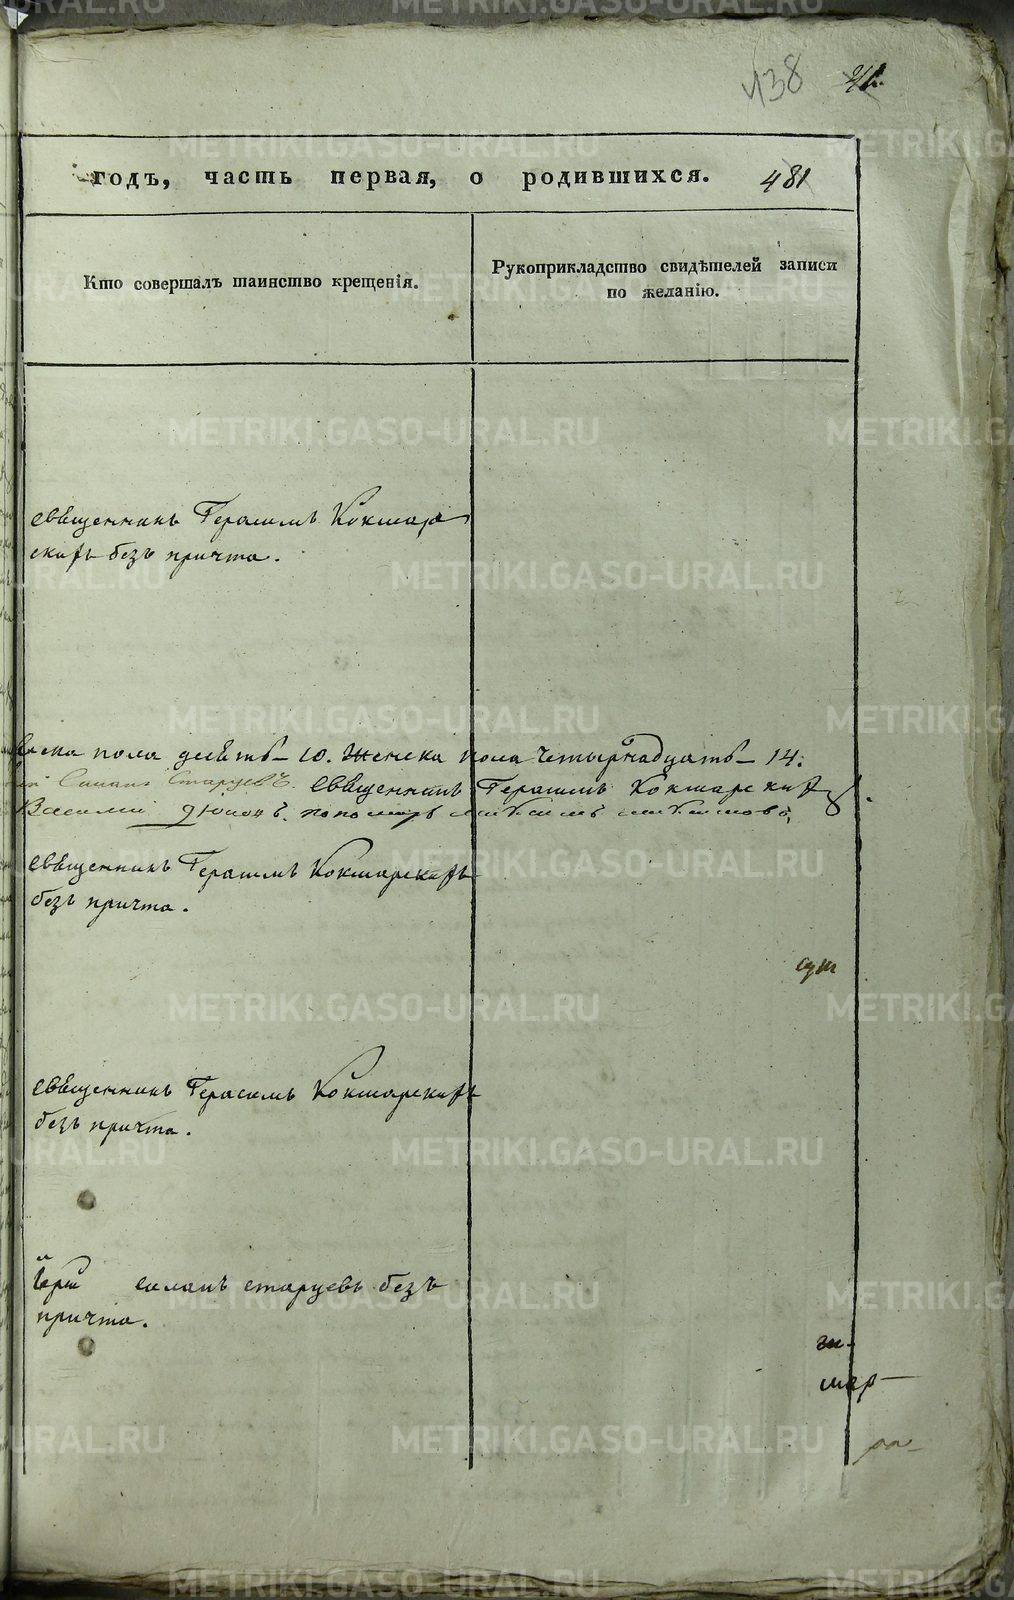 138
годъ, часть первая, о родившихся. 481
Кто совершалъ таинство крещенія.
Рукоприкладство свидѣтелей записи
по желанію.
священникъ Герасимъ Кокшар
скихъ безъ причта.
пола десять – 10. Женска пола четырнадцать – 14.
Старцевъ. священникъ Герасимъ Кокшарскихъ
Василій
священникъ Герасимъ Кокшарскихъ
безъ причта.
священникъ Герасимъ Кокшарскихъ
безъ причта.
Іерей старцевъ безъ
причта.
METRIKI.GASO-URAL.RU